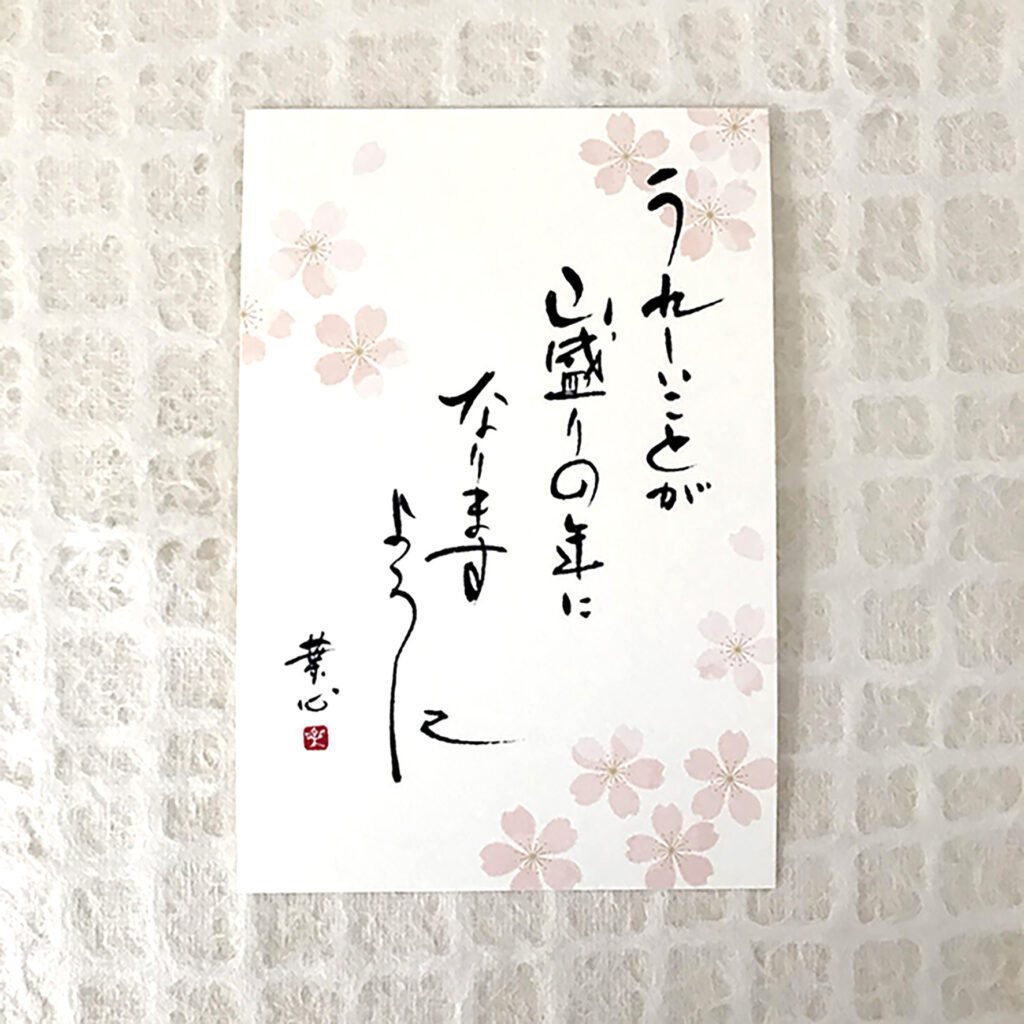 うれしいことが
山盛りの年に
なります
ように
葉心